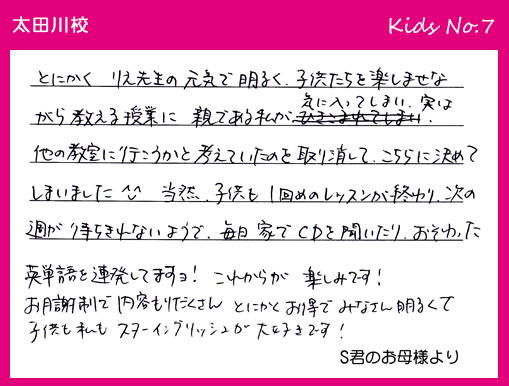 太田川校
Kids No.7
とにかく りえ先生の元気で明るく、子供たちを楽しませな
気に入ってしまい、実は
がら教える授業に 親である私が
他の教室に行こうかと考えていたのを取り消して、こちらに決めて
しまいました^^ 当然、子供も1回めのレッスンが終わり、次の
週が待ちきれないようで、毎日家でCDを聞いたり、おそわった
英単語を連発してますョ! これからが 楽しみです!
お月謝制で内容もりだくさん とにかくお得で みなさん明るくて
子供も私も スターイングリッシュが大好きです!
S君のお母様より